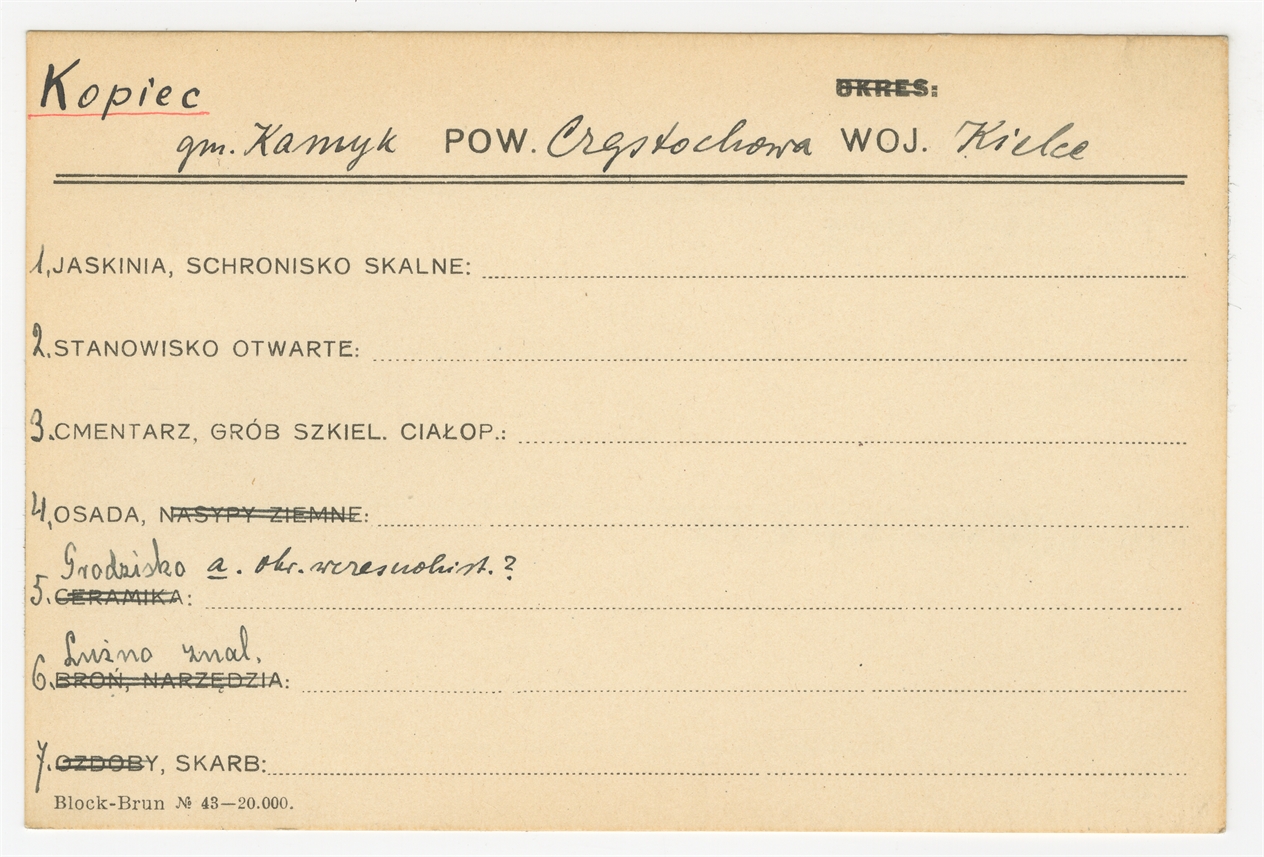 Kopiec
OKRES:
gm. Kamyk POW. Częstochowa WOJ. Kielce
1. JASKINIA, SCHRONISKO SKALNE:
2. STANOWISKO OTWARTE:
3. CMENTARZ, GRÓB SZKIEL. CIAŁOP.:
4. OSADA, NASYPY ZIEMNE:
Grodzisko a. okr. wczesnohist.?
5. CERAMIKA:
Luźno znal.
6. BROŃ, NARZĘDZIA:
7. OZDOBY, SKARB:
Block-Brun № 43—20.000.